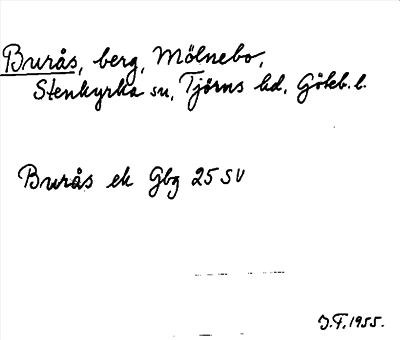 Burås, berg, Mölnebo,
Stenkyrka sn, Tjörns hd, Göteb. l.
Burås ek Gbg 25 SV
J.F. 1955.